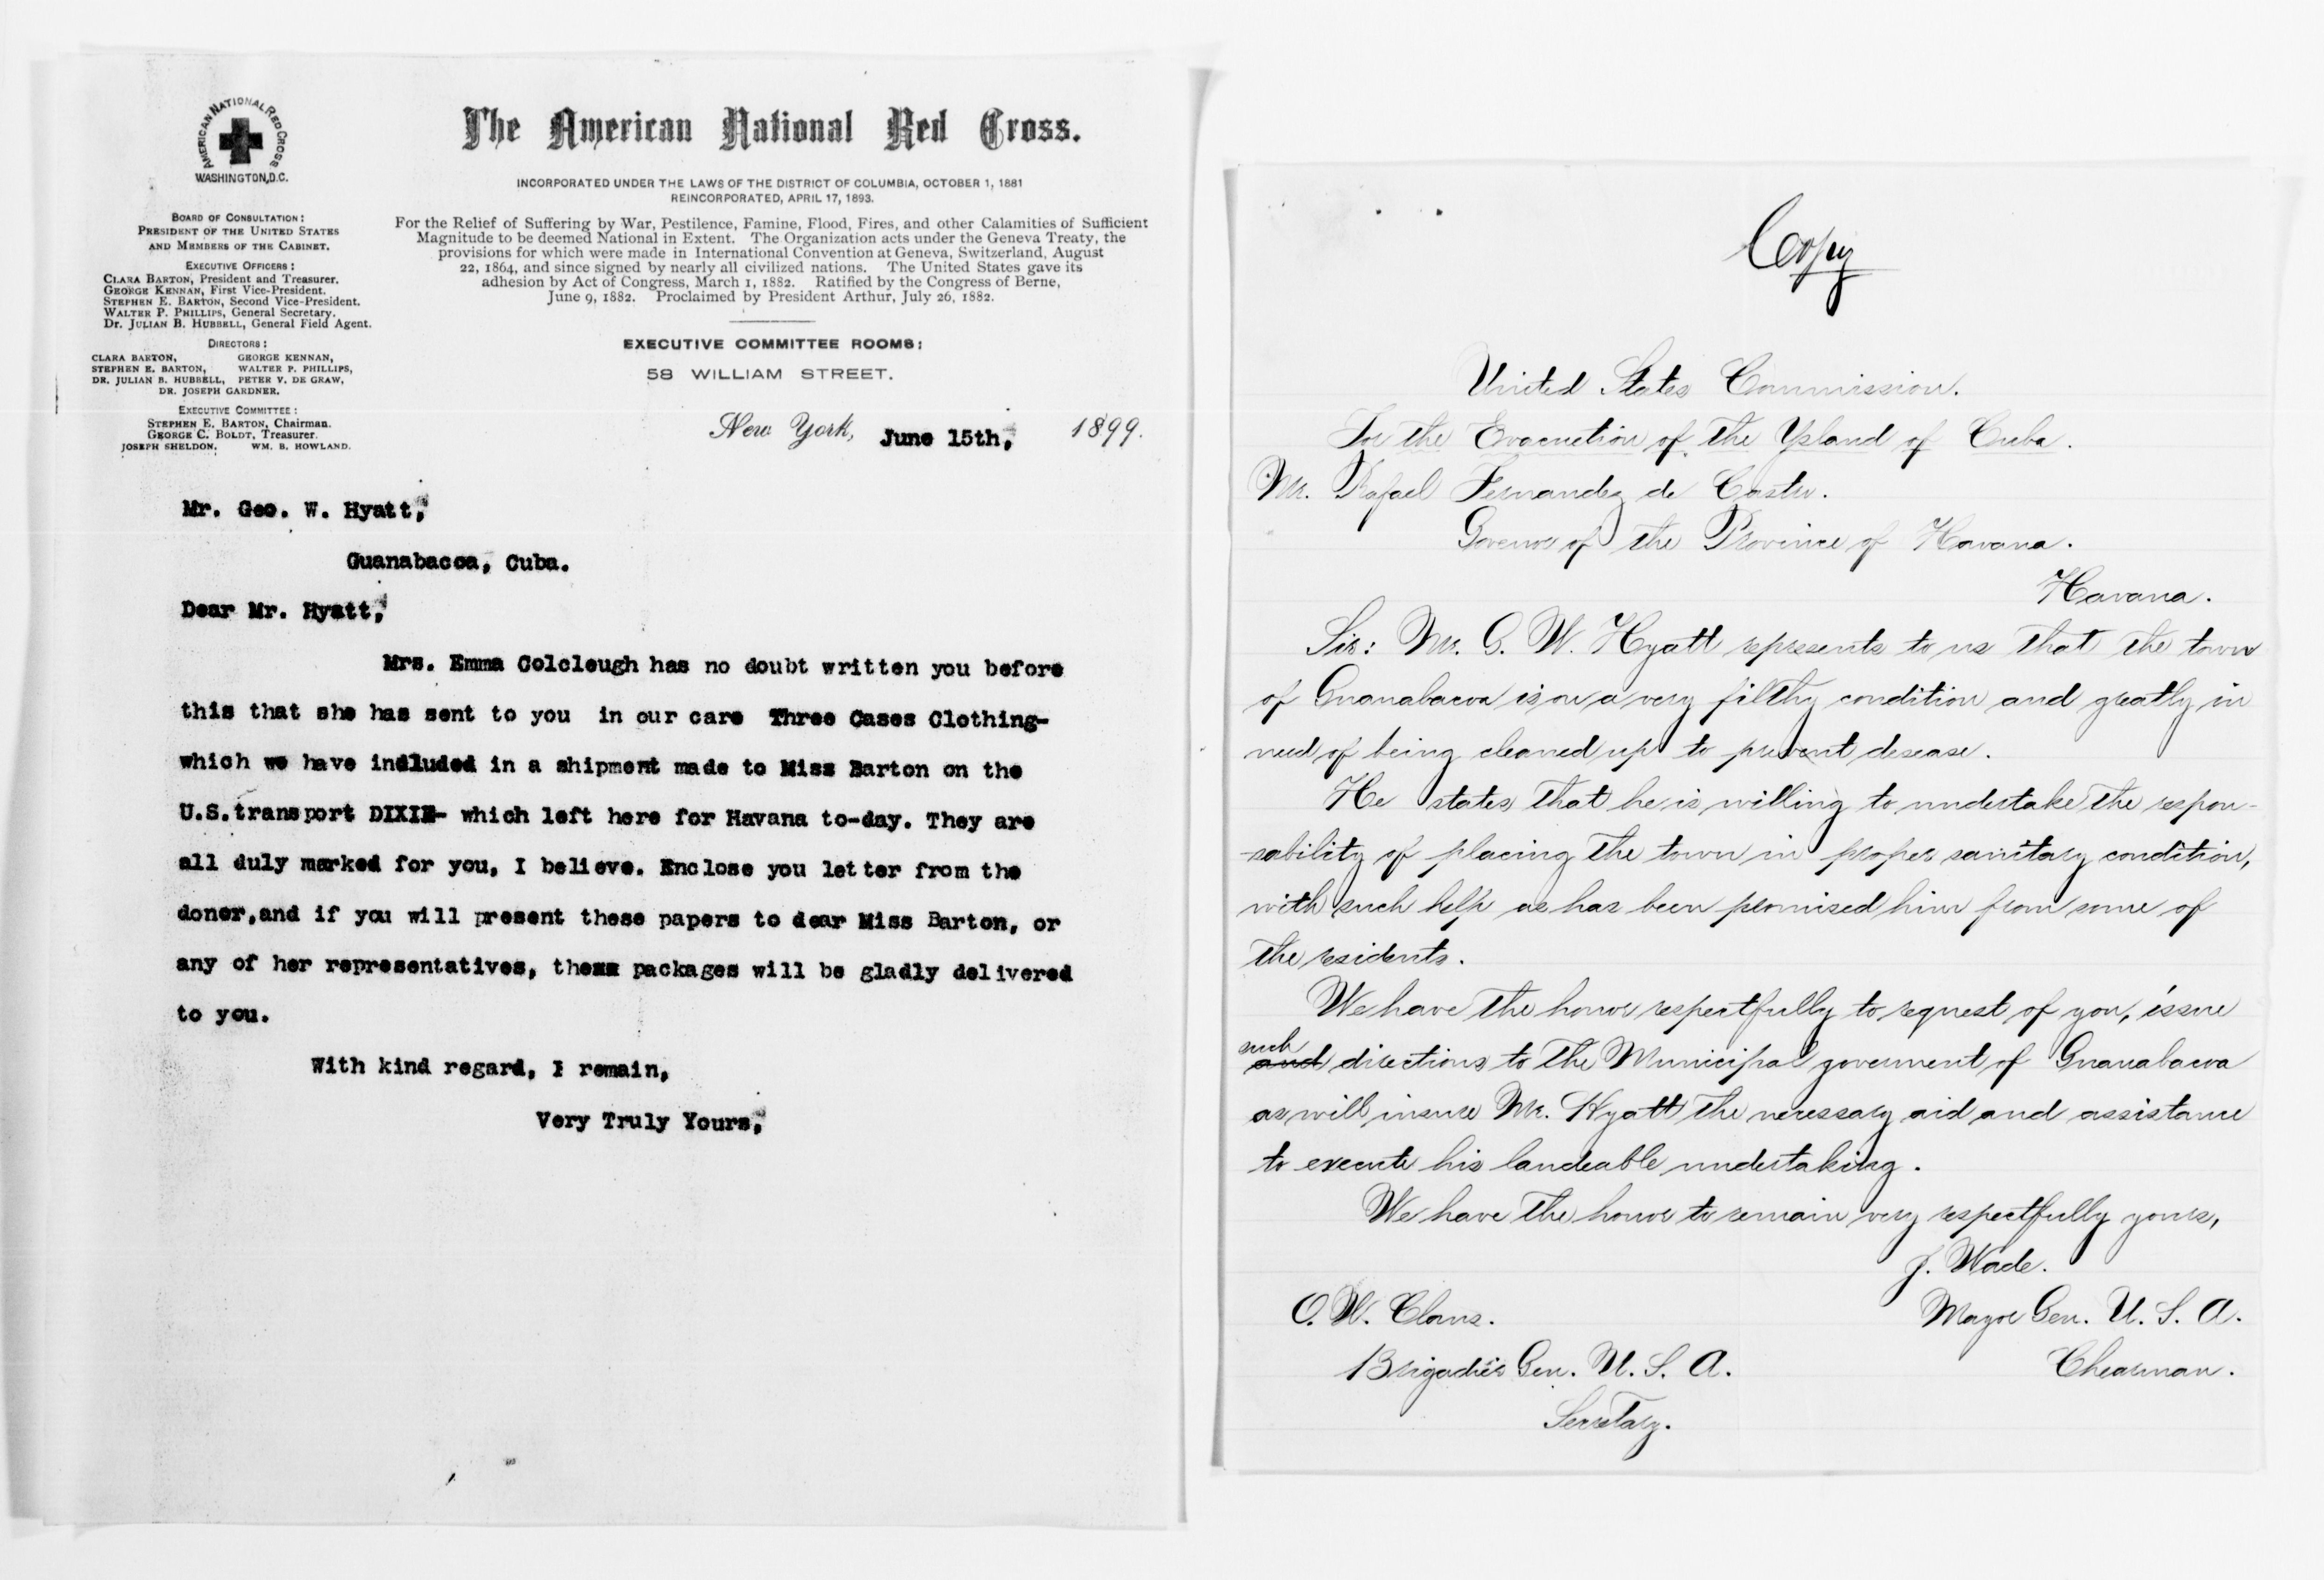 AMERICAN NATIONAL RED CROSS
WASHINGTON, D.C.
BOARD OF CONSULTATION:
PRESIDENT OF THE UNITED STATES
AND MEMBERS OF THE CABINET.
EXECUTIVE OFFICERS:
CLARA BARTON, President and Treasurer.
GEORGE KENNAN, First Vice-President.
STEPHEN E. BARTON, Second Vice-President.
WALTER P. PHILLIPS, General Secretary.
Dr. JULIAN B. HUBBELL, General Field Agent.
DIRECTORS:
CLARA BARTON, GEORGE KENNAN,
STEPHEN E. BARTON, WALTER P. PHILLIPS,
DR. JULIAN B. HUBBELL, PETER V. DE GRAW,
DR. JOSEPH GARDNER.
EXECUTIVE COMMITTEE:
STEPHEN E. BARTON, Chairman.
GEORGE C. BOLDT, Treasurer.
JOSEPH SHELDON. WM. B. HOWLAND.
The American National Red Cross.
INCORPORATED UNDER THE LAWS OF THE DISTRICT OF COLUMBIA, OCTOBER 1, 1881
REINCORPORATED, APRIL 17, 1893.
For the Relief of Suffering by War, Pestilence, Famine, Flood, Fires, and other Calamities of Sufficient
Magnitude to be deemed National in Extent. The Organization acts under the Geneva Treaty, the
provisions for which were made in International Convention at Geneva, Switzerland, August
22, 1864, and since signed by nearly all civilized nations. The United States gave its
adhesion by Act of Congress, March 1, 1882. Ratified by the Congress of Berne,
June 9, 1882. Proclaimed by President Arthur, July 26, 1882.
EXECUTIVE COMMITTEE ROOMS:
58 WILLIAM STREET.
New York, June 15th, 1899.
Mr. Geo. W. Hyatt,
Guanabacoa, Cuba.
Dear Mr. Hyatt,
Mrs. Emma Colcleugh has no doubt written you before
this that she has sent to you in our care Three Cases Clothing-
which we have indluded in a shipment made to Miss Barton on the
U.S.transport DIXIE- which left here for Havana to-day. They are
all duly marked for you, I believe. Enclose you letter from the
doner,and if you will present these papers to dear Miss Barton, or
any of her representatives, these packages will be gladly delivered
to you.
With kind regard, I remain,
Very Truly Yours,
Copy
United States Commission.
For the Evacuation of the Ysland of Cuba.
Mr. Rafael Fernandez de Castro.
Govenor of the Province of Havana.
Havana.
Sir: Mr. G. W. Hyatt represents to us that the town
of Guanabacoa is on a very filthy condition and greatly in
need of being cleaned up to prevent desease.
He states that he is willing to undertake the respon-
-sability of placing the town in proper sanitary condition,
with such help as has been promised him from some of
the residents.
We have the honor respectfully to request of you, issue
such
and directions to the Municipal goverment of Guanabacoa
as will insure Mr. Hyatt the necessary aid and assistance
to execute his laudeable undertaking.
We have the honor to remain very respectfully yours,
J. Wade.
O. W. Clous. Mayor Gen. U. S. A.
Brigadier Gen. U. S. A. Chearman.
Secretary.